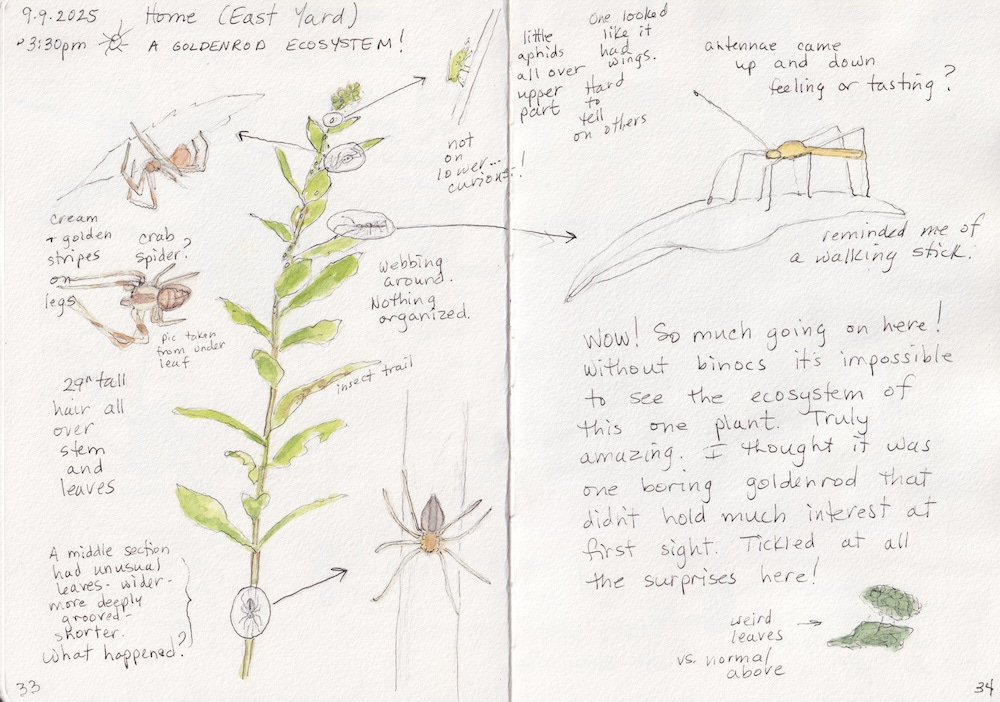 9.9.2025 Home (East Yard)
~3:30pm A GOLDENROD ECOSYSTEM!
not
on
lower...
curious!
cream
+ golden
stripes
on
legs
crab
spider?
pic taken
from under
leaf
webbing
around.
Nothing
organized.
29" tall
hair all
over
stem
and
leaves
insect trail
A middle section
had unusual
leaves - wider -
more deeply
grooved -
shorter.
What happened?
33
little
aphids
all over
upper
part
One looked
like it
had
wings.
Hard
to
tell
on others
antennae came
up and down
feeling or tasting?
reminded me of
a walking stick.
Wow! So much going on here!
Without binocs it's impossible
to see the ecosystem of
this one plant. Truly
amazing. I thought it was
one boring goldenrod that
didn't hold much interest at
first sight. Tickled at all
the surprises here!
weird
leaves
vs. normal
above
34